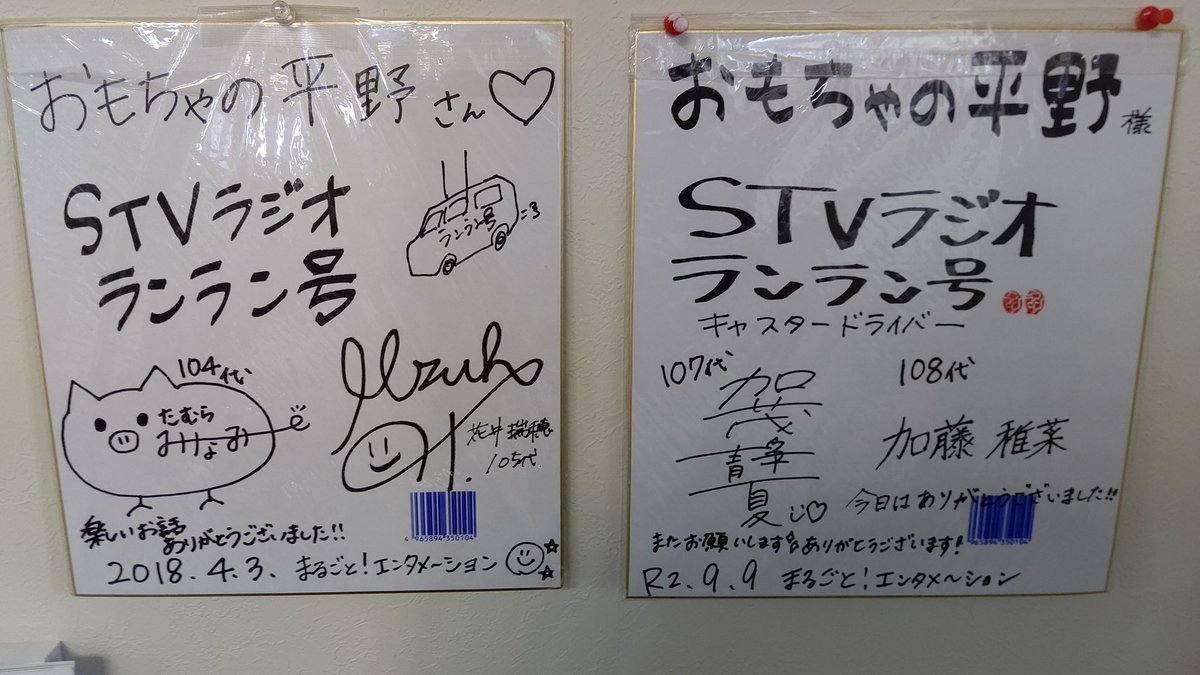 おもちゃの平野さん♡
STVラジオ
ランラン号
ランラン号
104代
たむら
みなみ
花井 瑞穂
105代.
4 965894 350104
楽しいお話
ありがとうございました!!
2018.4.3. まるごと!エンタメーション
おもちゃの平野様
STVラジオ
ランラン号
キャスタードライバー
107代
賀
茂
青華
夏
108代
加藤 稚菜
今日はありがとうございました!!
4 965894 350104
またお願いします ありがとうございます!
R2.9.9 まるごと!エンタメ〜ション